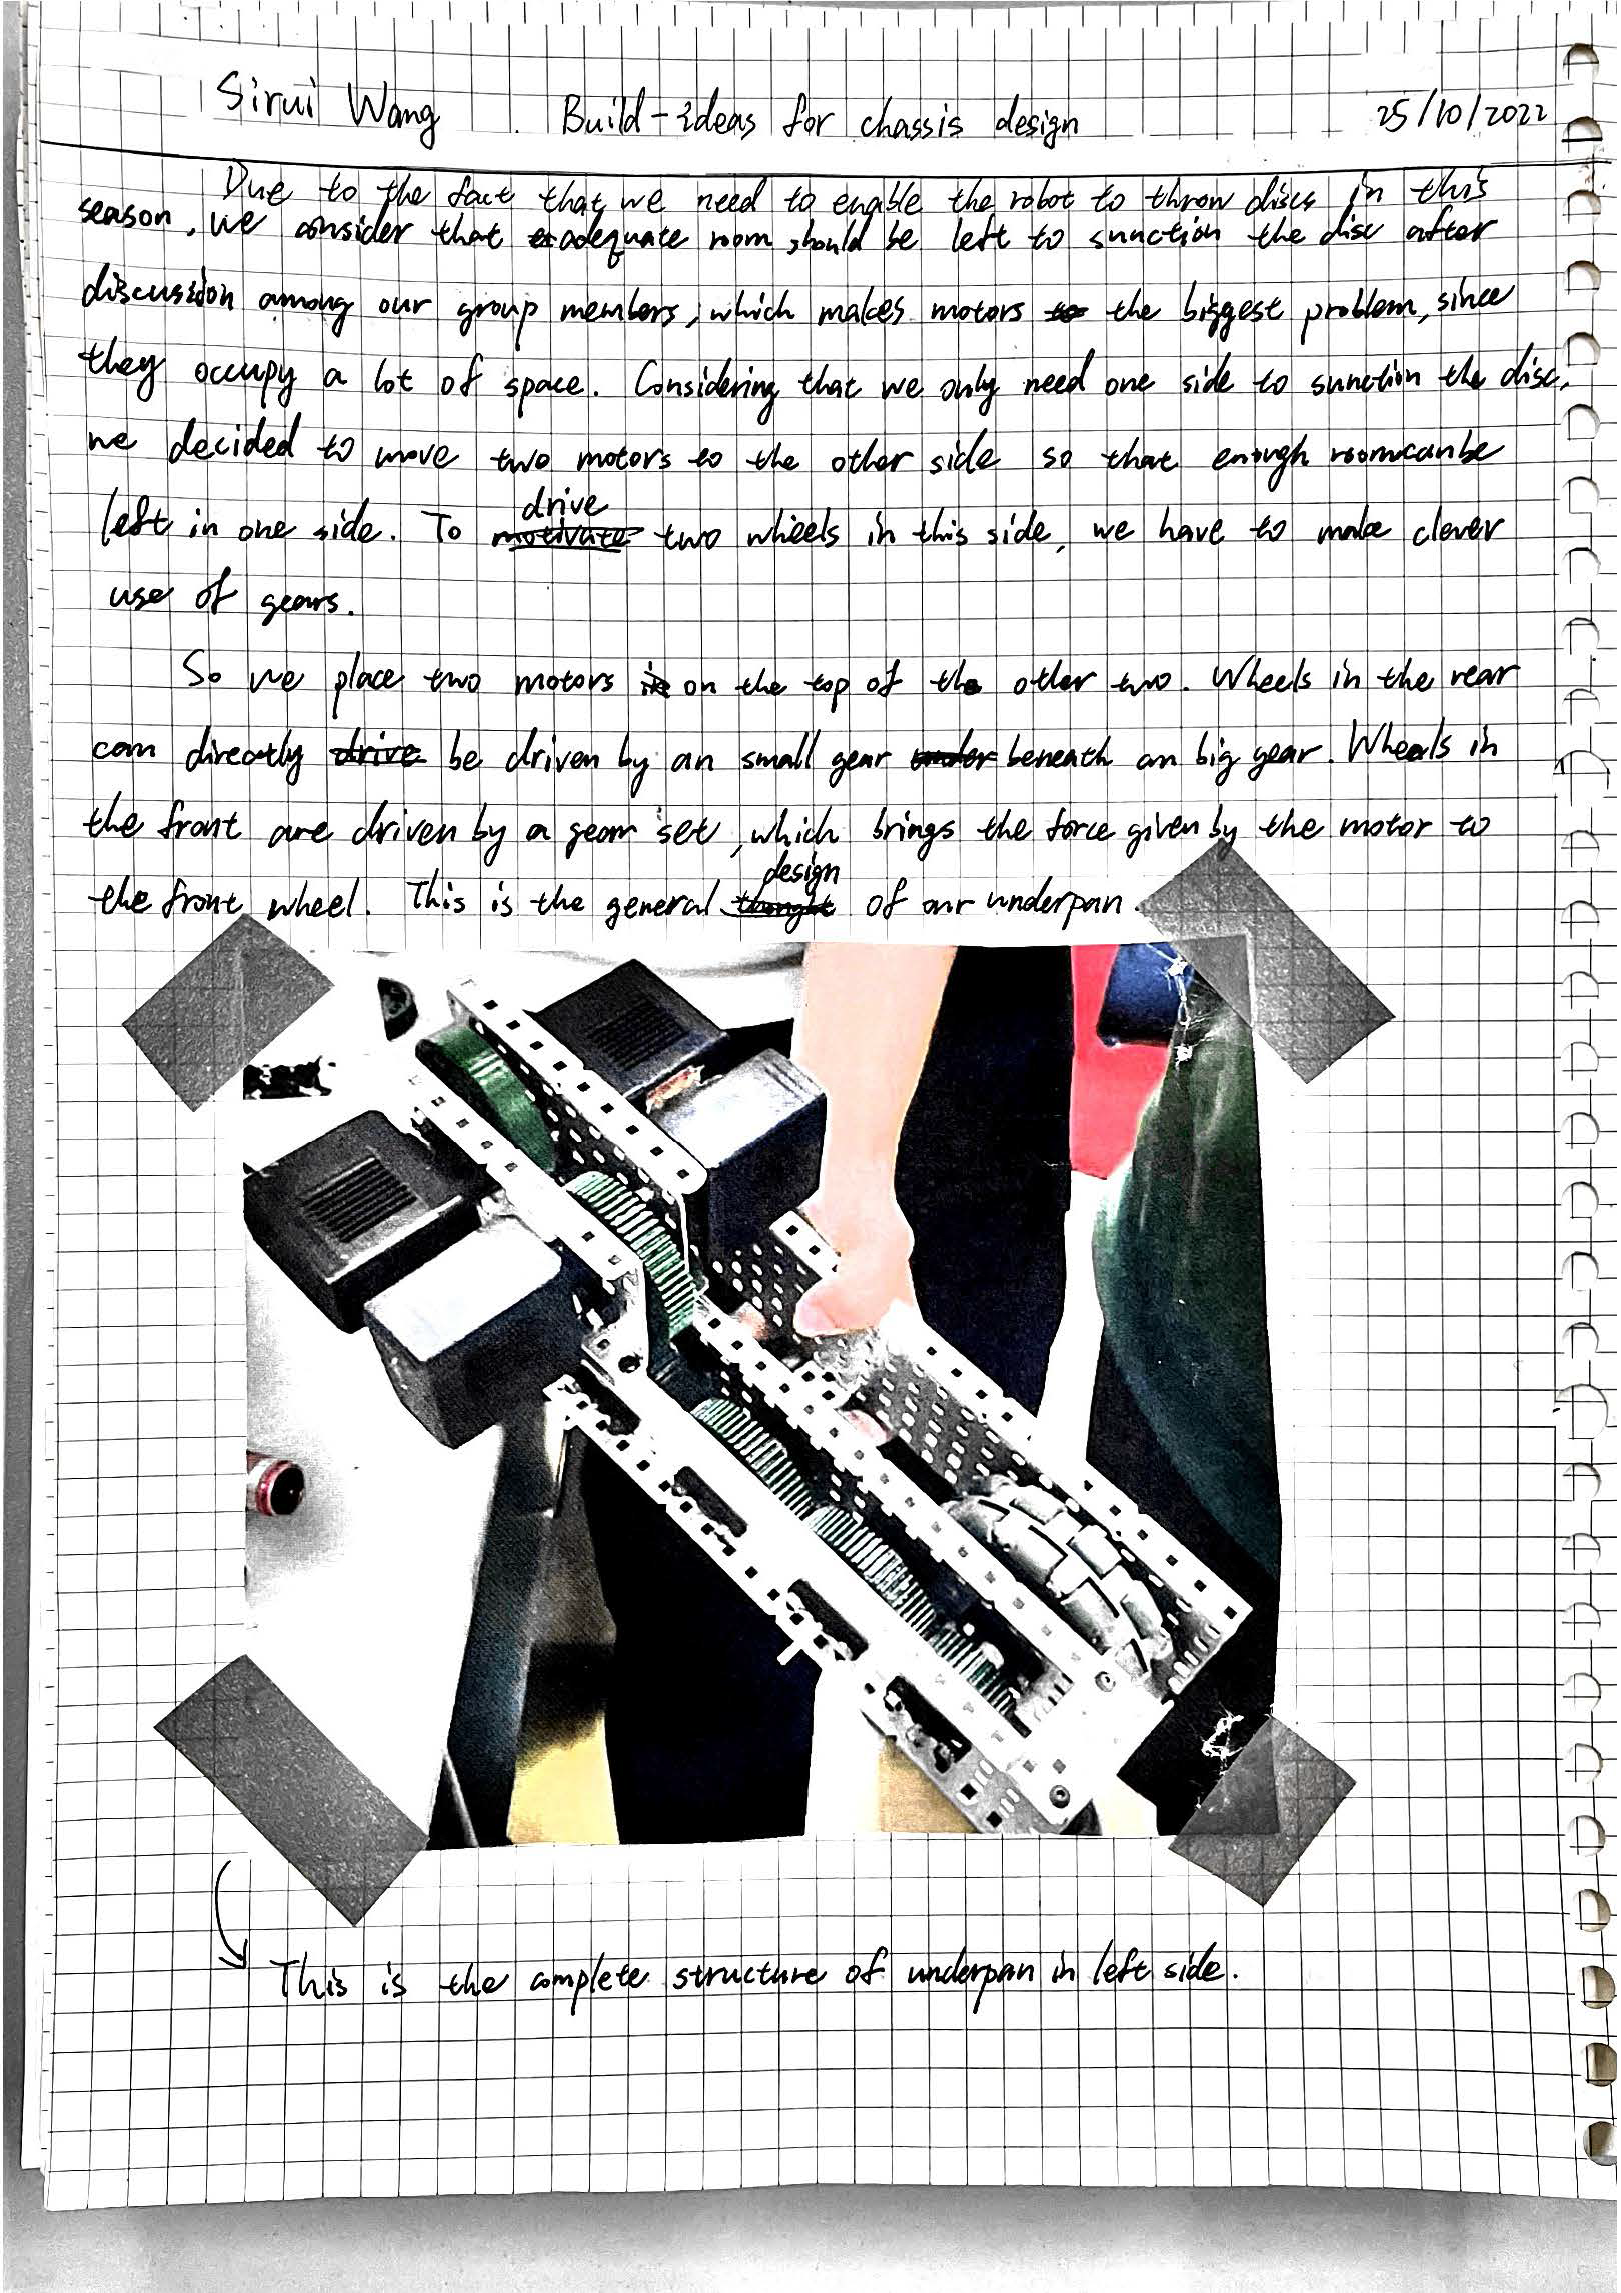 Sirui Wang Build-ideas for chassis design 25/10/2022
Due to the fact that we need to enable the robot to throw discs in this
season, we consider that adequate room should be left to sunction the disc after
discussion among our group members, which makes motors to the biggest problem, since
they occupy a lot of space. Considering that we only need one side to sunction the disc,
we decided to move two motors to the other side so that enough room can be
drive
left in one side. To motivate two wheels in this side, we have to make clever
use of gears.
So we place two motors in on the top of the other two. Wheels in the rear
can directly drive be driven by an small gear under beneath an big gear. Wheels in
the front are driven by a gear set, which brings the force given by the motor to
design
the front wheel. This is the general thought of our underpan.
This is the complete structure of underpan in left side.